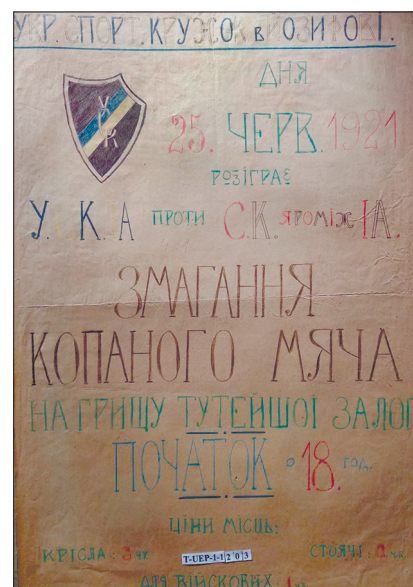 УКР. СПОРТ. КРУЖОК в ЙОЗИФОВІ.
ДНЯ
25. ЧЕРВ. 1921
РОЗІГРАЄ
У. К. А ПРОТИ С.К. ЯРОМІЖ ІА.
ЗМАГАННЯ
КОПАНОГО МЯЧА
НА ГРИЩУ ТУТЕЙШОЇ ЗАЛОГ
ПОЧАТОК о 18. год.
ЦІНИ МІСЦЬ:
КРІСЛА: 3 чк. СТОЯЧІ: 2 ч.к.
T-UEP-1-1203
ДЛЯ ВІЙСКОВИХ 1 чк